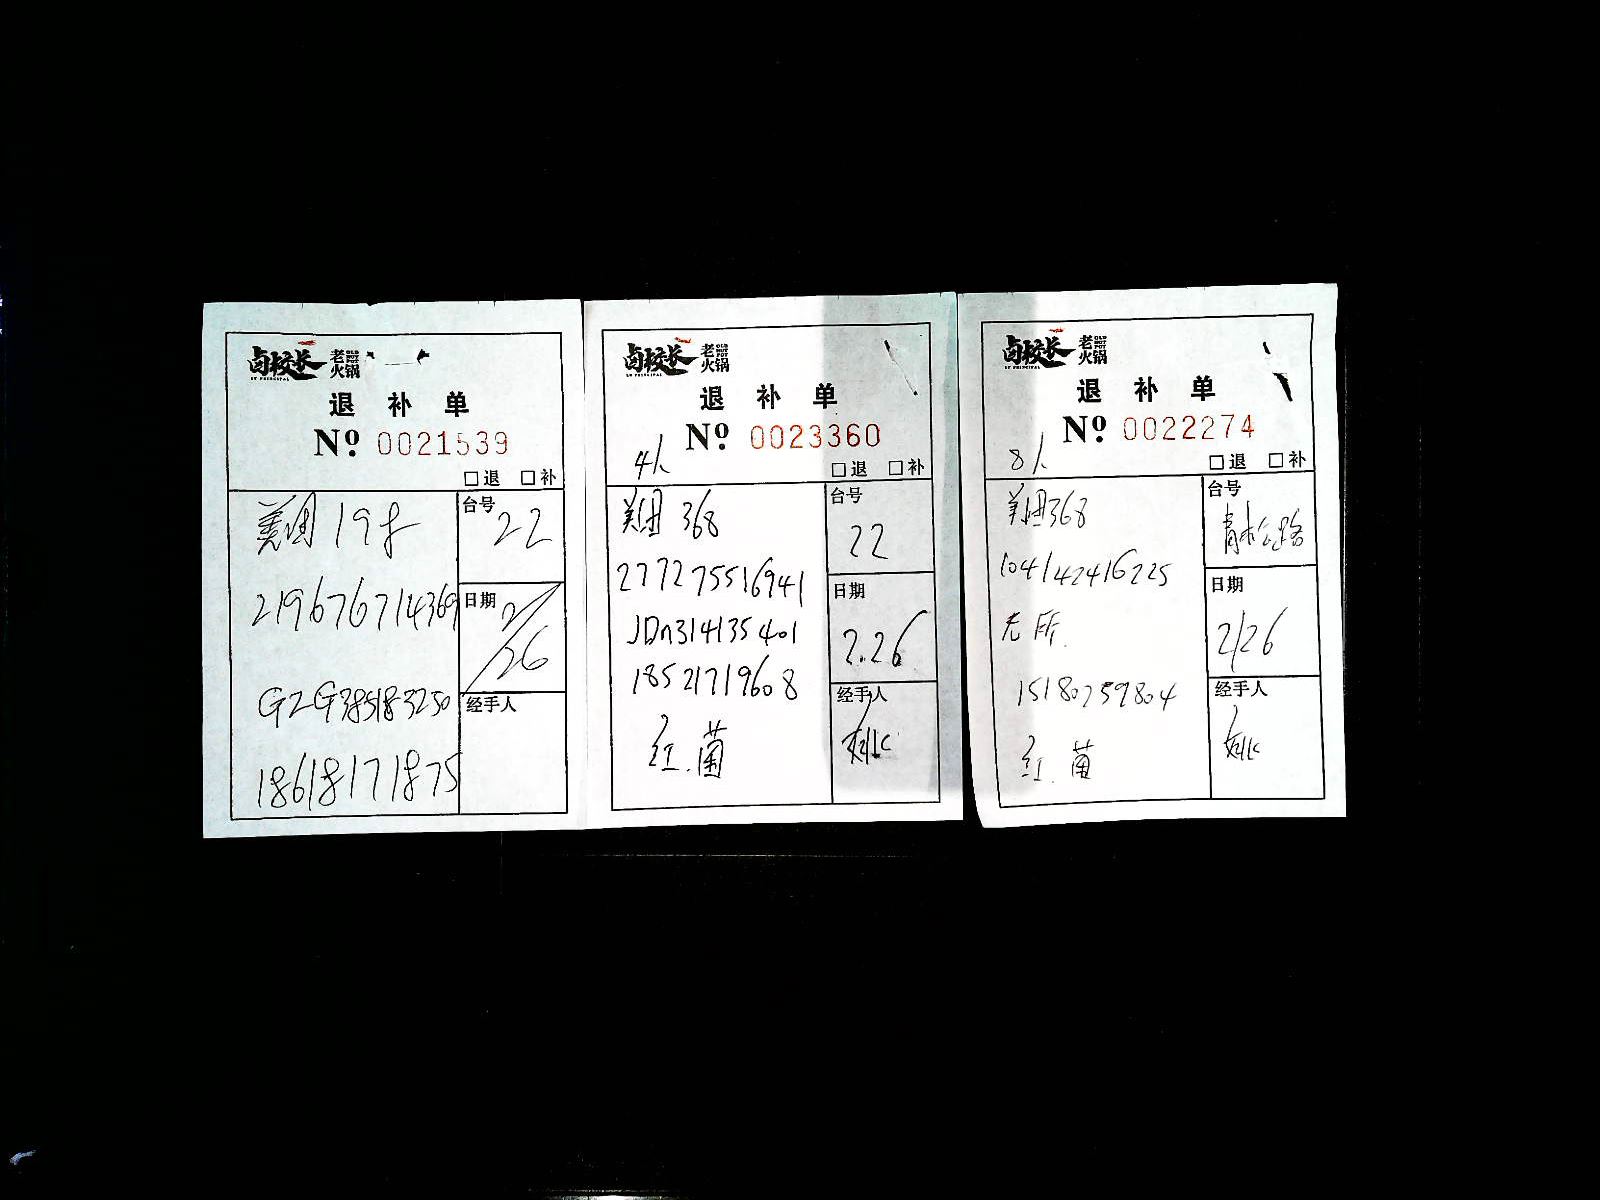 卤校长 老火锅
OLD HOT POT
LU PRINCIPAL
退 补 单
Nº 0021539
□退 □补
美团 198
台号
22
219676714369
日期
2/26
G2G385183250
经手人
18618171875
卤校长 老火锅
OLD HOT POT
LU PRINCIPAL
退 补 单
Nº 0023360
4人
□退 □补
美团 368
台号
22
277275516941
日期
2.26
JDn314135401
18521719608
经手人
红.菌
卤校长 老火锅
OLD HOT POT
退 补 单
Nº 0022274
8人
□退 □补
美团368
台号
104142416225
日期
2/26
15180759804
经手人
红.菌